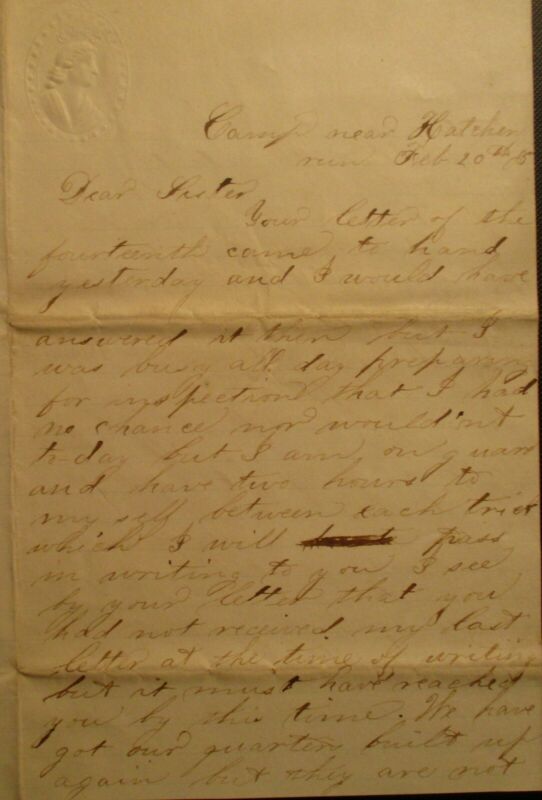 Camp near Hatcher
run Feb 20th /5
Dear Sister
Your letter of the
fourteenth came to hand
yesterday and I would have
answered it then but I
was busy all day preparing
for inspection that I had
no chance nor wouldnt
to-day but I am on guard
and have two hours to
my self between each trick
which I will pass
in writing to you I see
by your letter that you
had not received my last
letter at the time of writing
but it must have reached
you by this time. We have
got our quarters built up
again but they are not